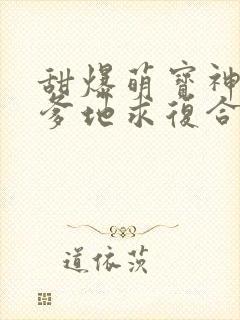 甜爆萌寶神
爹地求復合
道依茨